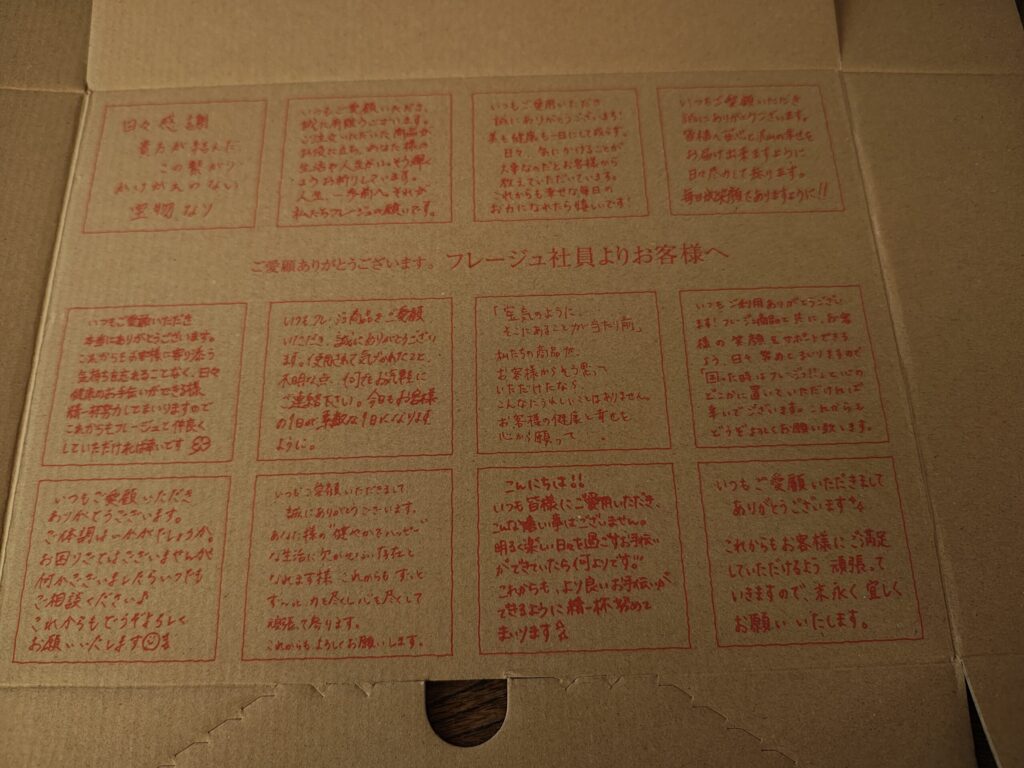 日々感謝
貴方が結んだ
この繋がり
かけがえのない
宝物なり
いつもご愛顧いただき、
誠に有難うございます。
ご注文いただいた商品が
お役に立ち、あなた様の
生活や人生がいっそう輝く
ようお祈りしています。
人生、一歩前へ。それが
私たちフレージュの願いです。
いつもご愛用いただき
誠にありがとうございます!
美も健康も一日にして成らず。
日々、気にかけることが
大事なのだとお客様から
教えていただいています。
これからも幸せな毎日の
お力になれたら嬉しいです!
いつもご愛顧いただき
誠にありがとうございます。
皆様へ安心と沢山の幸せを
お届け出来ますように
日々尽力して参ります。
毎日が笑顔でありますように!!
ご愛顧ありがとうございます。フレージュ社員よりお客様へ
いつもご愛顧いただき
本当にありがとうございます。
これからもお客様に寄り添う
気持ちを忘れることなく、日々
健康のお手伝いができる様、
精一杯努力してまいりますので
これからもフレージュと仲良く
していただければ幸いです
いつもフレージュ商品をご愛顧
いただき、誠にありがとうござい
ます。使用されて気づかれたこと、
不明な点、何でもお気軽に
ご連絡下さい。今日もお客様
の1日が素敵な1日になります
ように。
「空気のように、
そこにあることが当たり前」
私たちの商品が、
お客様からそう思って
いただけたなら、
こんなにうれしいことはありません。
お客様の健康と幸せを
心から願って…
いつもご利用ありがとうござい
ます!フレージュ商品と共に、お客
様の笑顔をサポートできる
よう、日々努めてまいりますので
「困った時はフレージュ!」と心の
どこかに置いていただければ
幸いでございます。これからも
どうぞよろしくお願い致します。
いつもご愛顧いただき
ありがとうございます。
ご体調は一いかがでしょうか。
お困りごとはございませんか
何かございましたらいつでも
ご相談ください♪
これからもどうぞよろしく
お願いいたします
いつもご愛顧いただきまして
誠にありがとうございます。
あなた様の"健やかでハッピー"
な生活に欠かせない存在と
なれます様 これからも ずっと
ずーっと、力を尽くし心を尽くして
頑張って参ります。
これからもよろしくお願いします。
こんにちは!!
いつも皆様にご愛用いただき、
こんな嬉しい事はございません。
明るく楽しい日々を過ごすお手伝い
ができていたら何よりです!!
これからも、より良いお手伝いが
できるように精一杯努めて
まいります☆
いつもご愛顧いただきまして
ありがとうございます
これからもお客様にご満足
していただけるよう 頑張って
いきますので、末永く宜しく
お願いいたします。